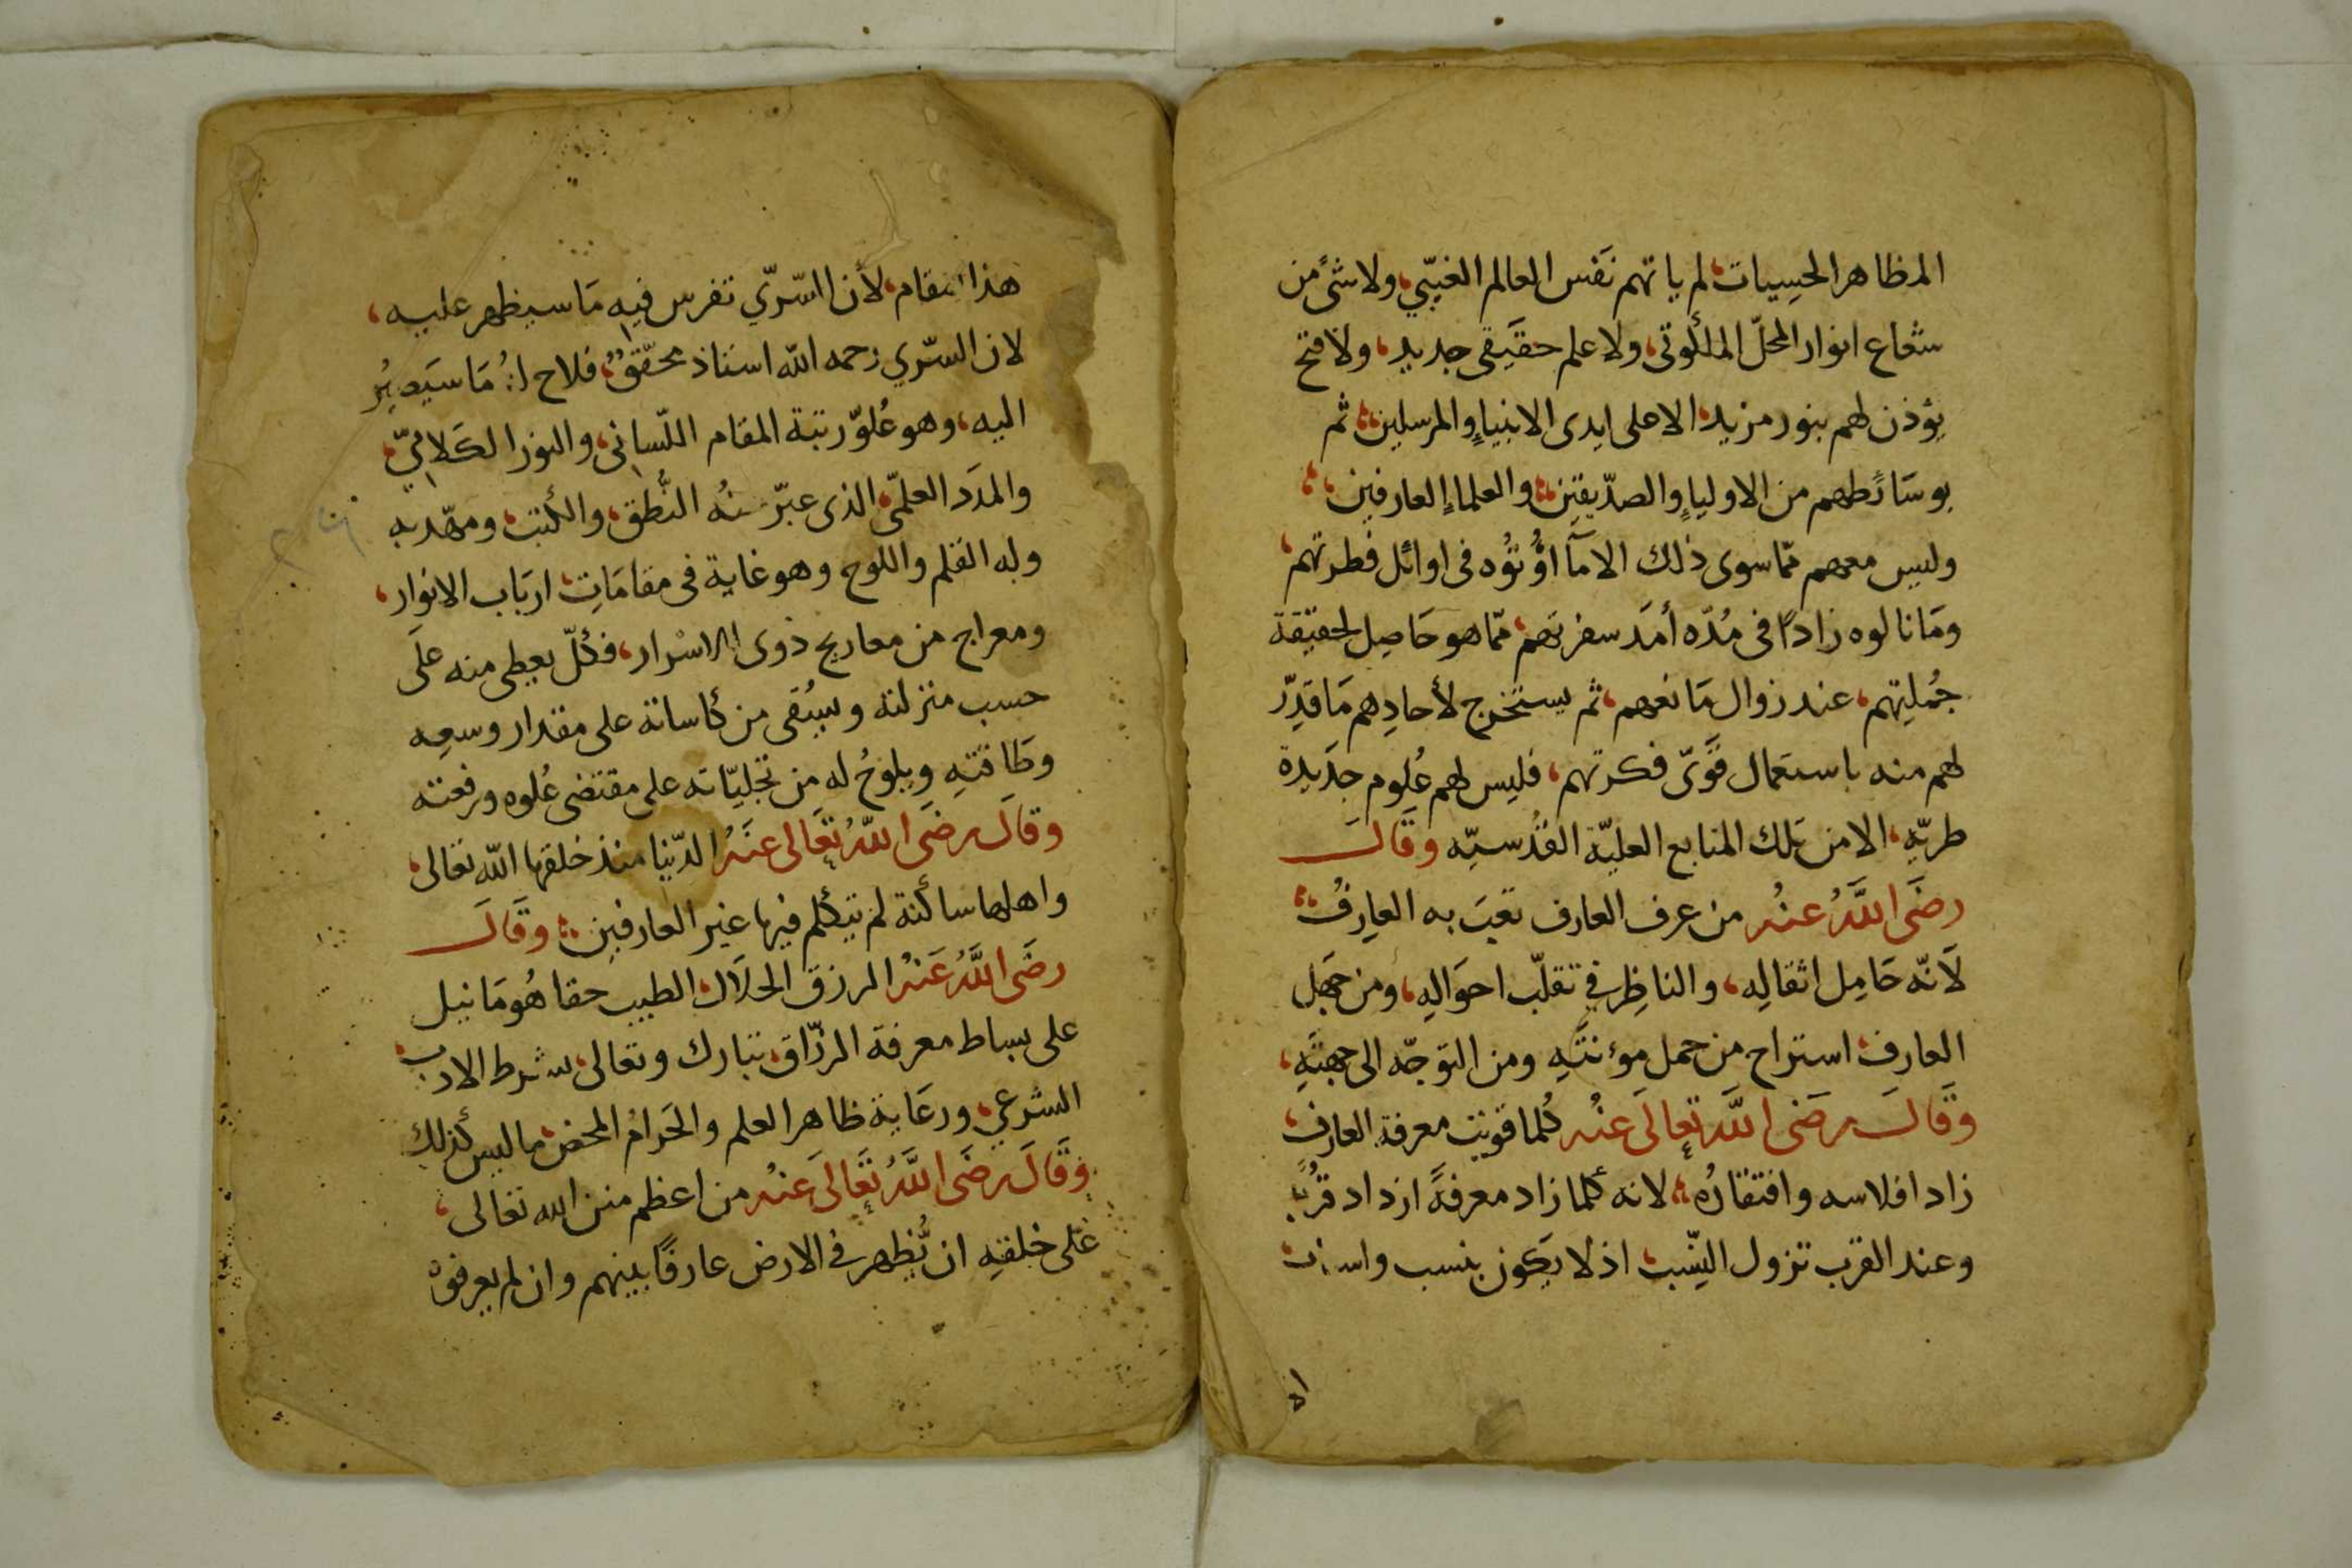 المظاهر الحسيات، لم ياتهم نَفَس العالم الغيبّي، ولا شئ من
شعاع انوار المحلّ الملكوتى، ولا علم حقيقى جديد، ولا فتح
يؤذن لهم بنور مزيد، الا على ايدى الانبياء والمرسلين، ثم
بوسَائطهم من الاولياء والصدّيقين، والعلماء العارفين،
وليس معهم ممّا سوى ذلك الا مَآ اُوْتُوْه فى اوائل فطرتهم،
ومَا نالوه زادًا فى مُدّه أمَد سفرتهم، ممّا هو حَاصِل لحقيقة
جُملِتهم، عند زوال مَا نعهم، ثم يستخرج لأحادِهم مَا قدِّر
لهم منه باستعمال قوّى فكرتهم، فليس لهم عُلوم جدَيدة
طريّه، الا من تلك المنابع العليّة القدُسيّه وقَالَ
رضَى اللَّهُ عنْه من عرف العارف تعبَ به العارِفُ،
لَانّه حَامِل اثقالِه، والناظِر في تقلّب احوَالِه، ومن جهَل
العارف، استراح من حمل موءنتَهِ ومن التوجّه الى جهتَهِ،
وَقَالَ رضَى اللَّه تعالَى عنْه كُلما قويت معرفة العارف،
زاد افلاسه وافتقارُه، لانه كلما زاد معرفةً ازداد قُربً
وعند القرب تزول النِّسَب، اذ لا يكون بنسب
اه
هذا المقام، لأن السّرّي تفرس فيه مَا سيظهر عليه،
لان السّري رحمه الله استاذ محقّقٌ، فلاح له مَا سَيَصِيْرُ
اليه، وهو عُلوّ رتبة المقام اللّسانى، والنور الكَلامىّ،
والمدَد العلمّى، الذى عبّر عنْه النُّطق، والكتب، ومهّد به
وله القلم واللوح وهو غاية فى مقامَاتِ، اربَاب الانوار،
ومعراج من معاريج ذوى الاسْرار، فكُلّ يعطى منه علَى
حسب منزلته ويسُقى من كاساته على مقدار وسعِه
وطَاقتهِ ويلوحُ له من تجليّاته على مقتضى عُلوه ورفعته
وقالَ رضَى اللّهُ تعَالى عنَهُ الدّنيا منذ خلقها اللّه تعالى،
واهلها ساكنة لم يتكلم فيها غير العارفين، وقَالَ
رضَى اللَّهُ عَنهُ الرزق الحلَال، الطيب حقا هُو مَا نيل
على بساط معرفة الرزّاق، تبارك وتعالى، بشرط الادب،
الشرعي، ورعَاية ظاهر العلم والحَرامُ المحض، ما ليس كذلك
وقَالَ رضَى اللَّهُ تعَالَى عَنهُ من اعظم منن الله تعالى،
عَلى خلقهِ ان يُظهر فى الارض عارفًا بينهم وان لم يعرفوْ